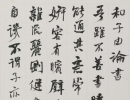 和子由論書
吾雖不善書
能通其意常
妍容有矉璧
雜流麗剛健
自譏不謂子亦